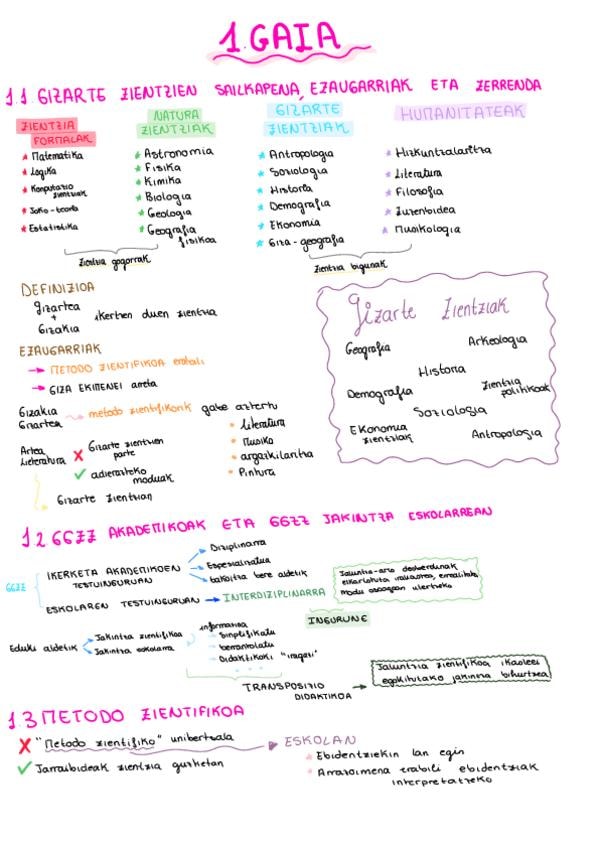 1.GAIA
1.1 GIZARTE ZIENTZIEN SAILKAPENA, EZAUGARRIAK ETA ZERRENDA
ZIENTZIA FORMALAK
* Matematika
* Logika
* Konputazio zientziak
* Joko-teoria
* Estatistika
NATURA ZIENTZIAK
* Astronomia
* Fisika
* Kimika
* Biologia
* Geologia
* Geografia fisikoa
Zientzia gogorrak
GIZARTE ZIENTZIAK
* Antropologia
* Soziologia
* Historia
* Demografia
* Ekonomia
* Giza-geografia
HUMANITATEAK
* Hizkuntzalaritza
* Literatura
* Filosofia
* Zuzenbidea
* Musikologia
Zientzia bigunak
DEFINIZIOA
Gizartea
+
Gizakia
ikertzen duen zientzia
EZAUGARRIAK
→ METODO ZIENTIFIKOA erabili
→ GIZA EKIMENEI arreta
Gizakia
Gizartea
metodo zientifikorik gabe aztertu
* Literatura
* Musika
* argazkilaritza
* Pintura
Artea
Literatura
✗ Gizarte zientzien parte
✓ adierazteko moduak
Gizarte Zientzian
Gizarte Zientziak
Geografia
Arkeologia
Historia
Demografia
Zientzia politikoak
Soziologia
Ekonomia zientziak
Antropologia
1.2 GGZZ AKADEMIKOAK ETA GGZZ JAKINTZA ESKOLARREAN
GGZZ
IKERKETA AKADEMIKOEN TESTUINGURUAN
Diziplinarra
Espezializatua
bakoitza bere aldetik
ESKOLAREN TESTUINGURUAN → INTERDIZIPLINARRA
Jakintza-arlo desberdinak
elkarlotuta irakastea, errealitatea
modu osoagoan ulertzeko
INGURUNE
Eduki aldetik
Jakintza zientifikoa
Jakintza eskolarra
informazioa
Sinplifikatu
berrantolatu
Didaktikoki "iragazi"
TRANSPOSIZIO DIDAKTIKOA
Jakintza zientifikoa ikasleei
egokitutako jakintza bihurtzea
1.3 METODO ZIENTIFIKOA
✗ "Metodo zientifiko" unibertsala
✓ Jarraibideak zientzia gizketan
ESKOLAN
* Ebidentziekin lan egin
* Arrazoimena erabili ebidentziak
interpretatzeko